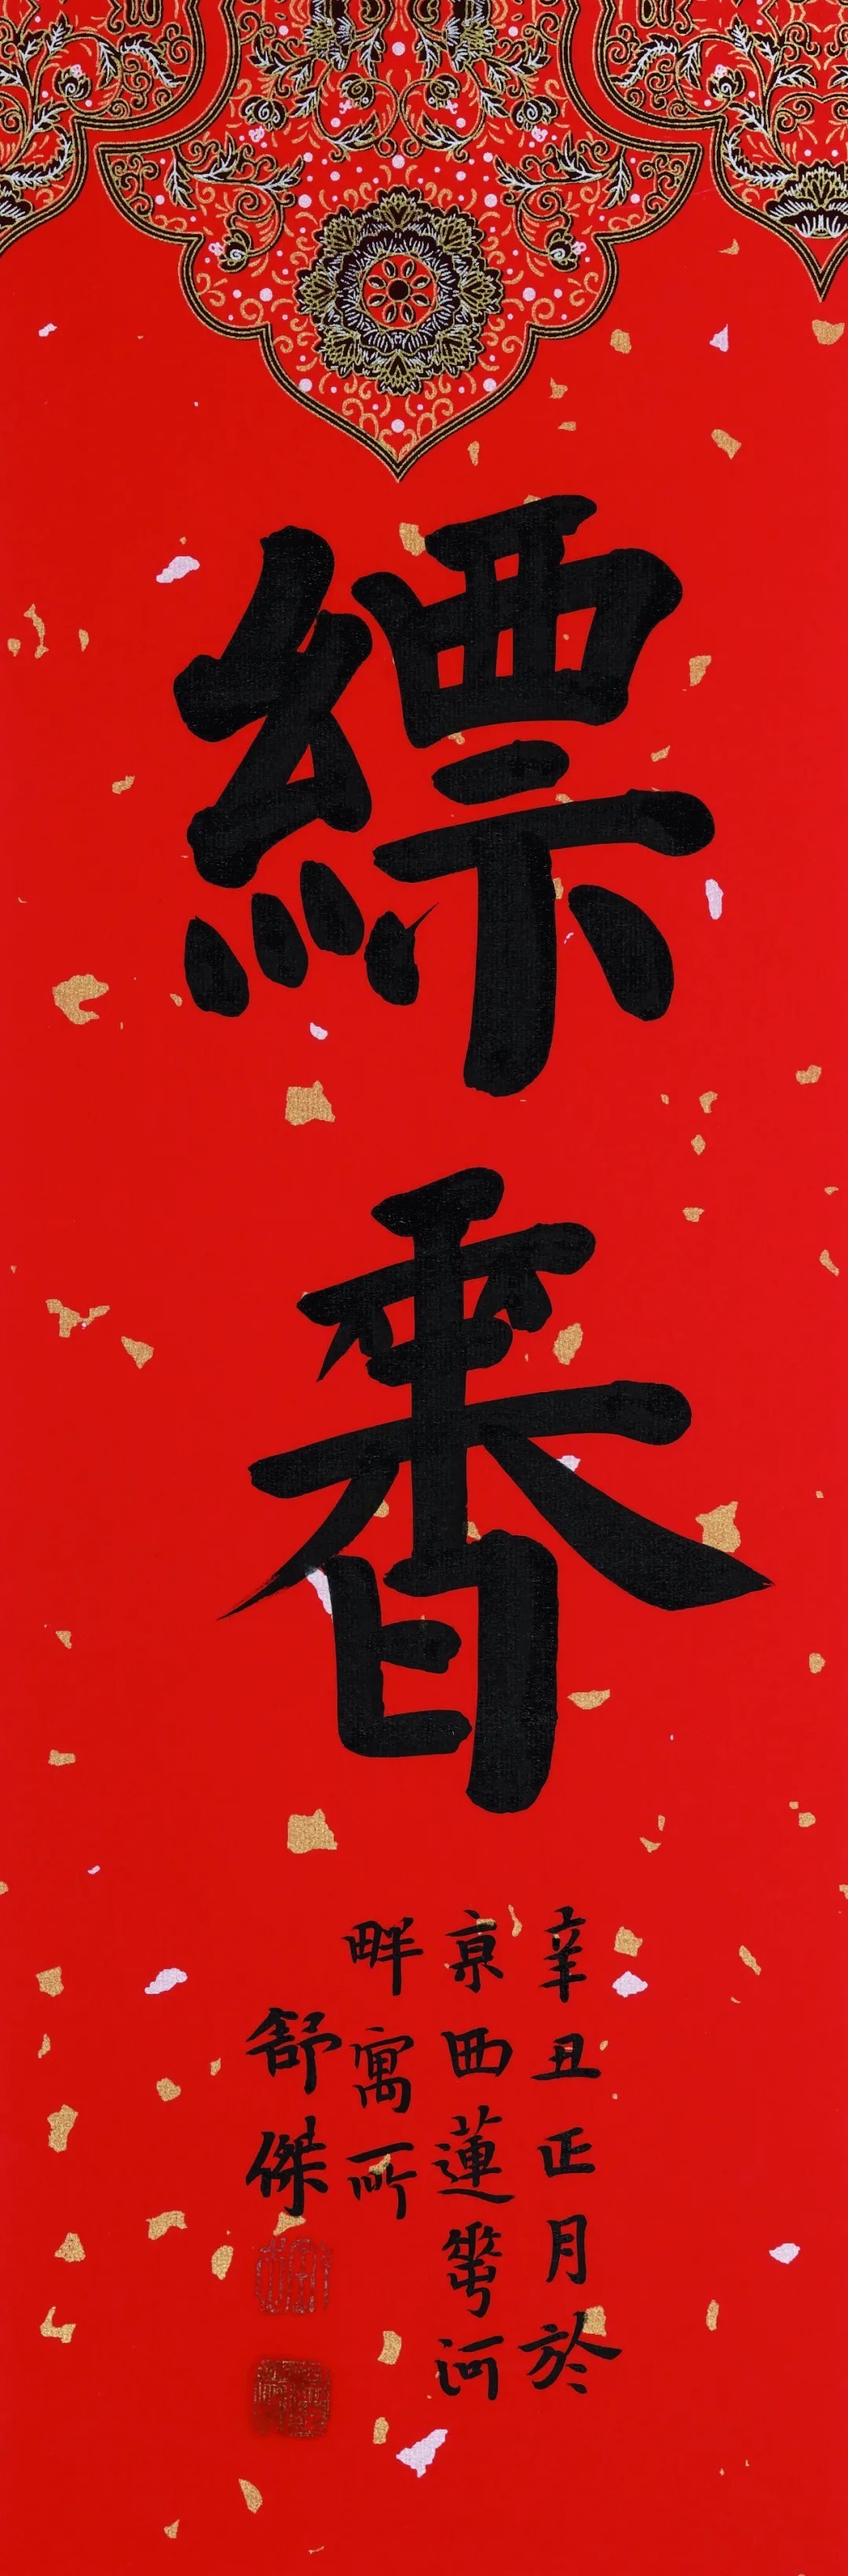 縹香
辛丑正月於
亰西蓮華河
畔寓所
舒傑